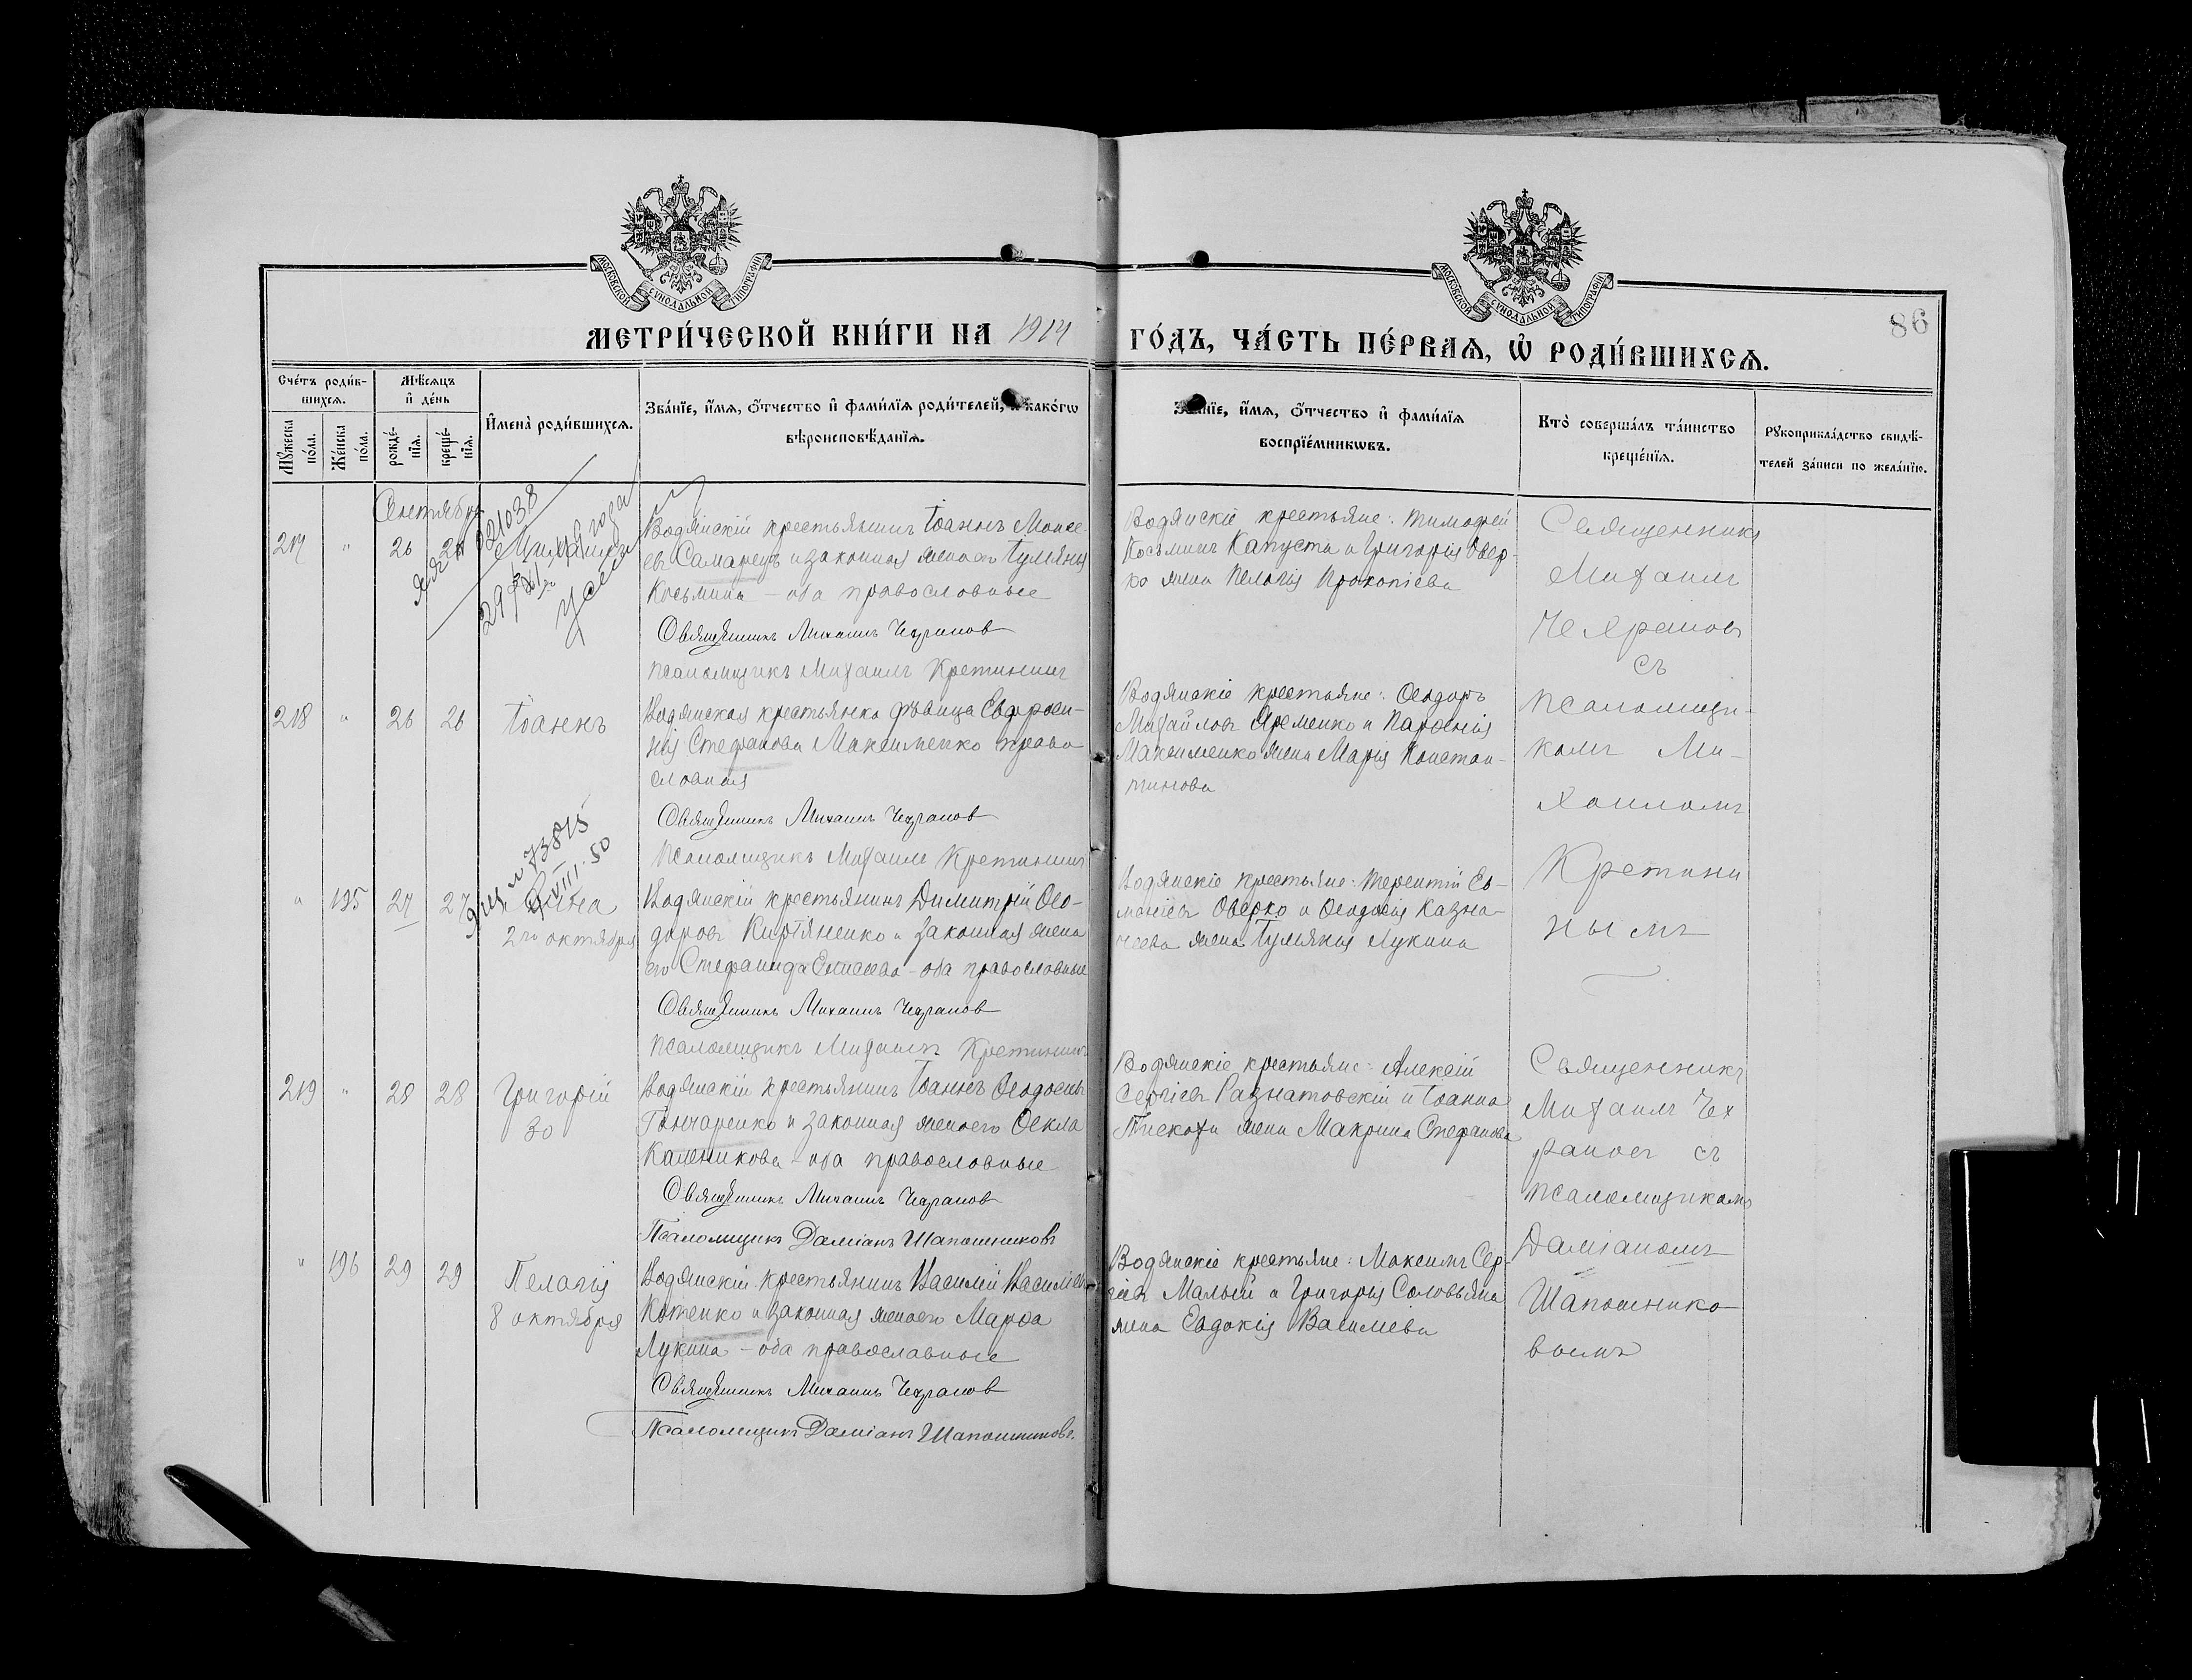 МОСКОВСКОЙ СѴНОДАЛЬНОЙ ТИПОГРАФІИ
МОСКОВСКОЙ СѴНОДАЛЬНОЙ ТИПОГРАФІИ
86
МЕТРИ́ЧЕСКОЙ КНИ́ГИ НА 1914 ГО́ДЪ, ЧА́СТЬ ПЕ́РВАѦ, Ѽ РОДИ́ВШИХСѦ.
Сче́тъ роди́в-
шихсѧ.
Мѣ́сѧцъ
и҆ де́нь
Мꙋ́жеска по́ла.
Же́нска по́ла.
рожде́-
нїѧ.
креще́-
нїѧ.
И҆мена̀ роди́вшихсѧ.
Зва́нїе, и҆́мѧ, ѻ҆́тчество и҆ фами́лїѧ роди́телей, и҆ како́гѡ
вѣроисповѣ́данїѧ.
Зва́нїе, и҆́мѧ, ѻ҆́тчество и҆ фами́лїѧ
воспрїе́мникѡвъ.
Кто̀ соверша́лъ та́инство
креще́нїѧ.
Рꙋкоприкла́дство свидѣ́-
телей за́писи по жела́нїю.
Сентябрь
217 " 26
Водянскій крестьянинъ Іоаннъ Моисе
евъ Самарецъ и законная жена его Іуліанія
Косьмина – оба православные
Священникъ Михаилъ Чехрановъ
Псаломщикъ Михаилъ Кретининъ
Водянскіе крестьяне: Тимофей
Косьминъ Капуста и Григорія Овер-
ко жена Пелагія Прокопіева
Священникъ
Михаилъ
Чехрановъ
съ
псаломщи-
комъ Ми-
хаиломъ
Кретини
нымъ
218 " 26 26 Іоаннъ
Водянская крестьянка дѣвица Евфроси-
нія Стефанова Максименко право
славная
Священникъ Михаилъ Чехрановъ
Псаломщикъ Михаилъ Кретининъ
Водянскіе крестьяне: Ѳеодоръ
Михайловъ Яременко и Парѳенія
Максименко жена Марія Констан-
тинова
73875
VIII-50
" 195 27 27
2го октября
Водянскій крестьянинъ Димитрій Ѳео-
доровъ КирIяненко и законная жена
его Стефанида Елисеева – оба православные
Священникъ Михаилъ Чехрановъ
Псаломщикъ Михаилъ Кретининъ
Водянскіе крестьяне: Терентій Ев-
Оверко и Ѳеодосія Казна-
чеева жена Іуліанія Лукина
219 " 28 28 Григорій
30
Водянскій крестьянинъ Іоаннъ Ѳеодосіевъ
Гончаренко и законная жена его Ѳекла
Каленикова – оба православные
Священникъ Михаилъ Чехрановъ
Псаломщикъ Даміанъ Шапошниковъ
Водянскіе крестьяне: Алексій
Сергіевъ Разнатовскій и Іоанна
жена Макрина Стефанова
Священникъ
Михаилъ Чех
рановъ съ
псаломщикомъ
Даміаномъ
Шапошнико-
вымъ
" 196 29 29 Пелагія
8 октября
Водянскій крестьянинъ Василій Васильевъ
Котенко и законная жена его Марѳа
Лукина – оба православные
Священникъ Михаилъ Чехрановъ
Псаломщикъ Даміанъ Шапошниковъ.
Водянскіе крестьяне: Максимъ Сер-
гіевъ Малый и Григорія Соловьяна
жена Евдокія Васильева